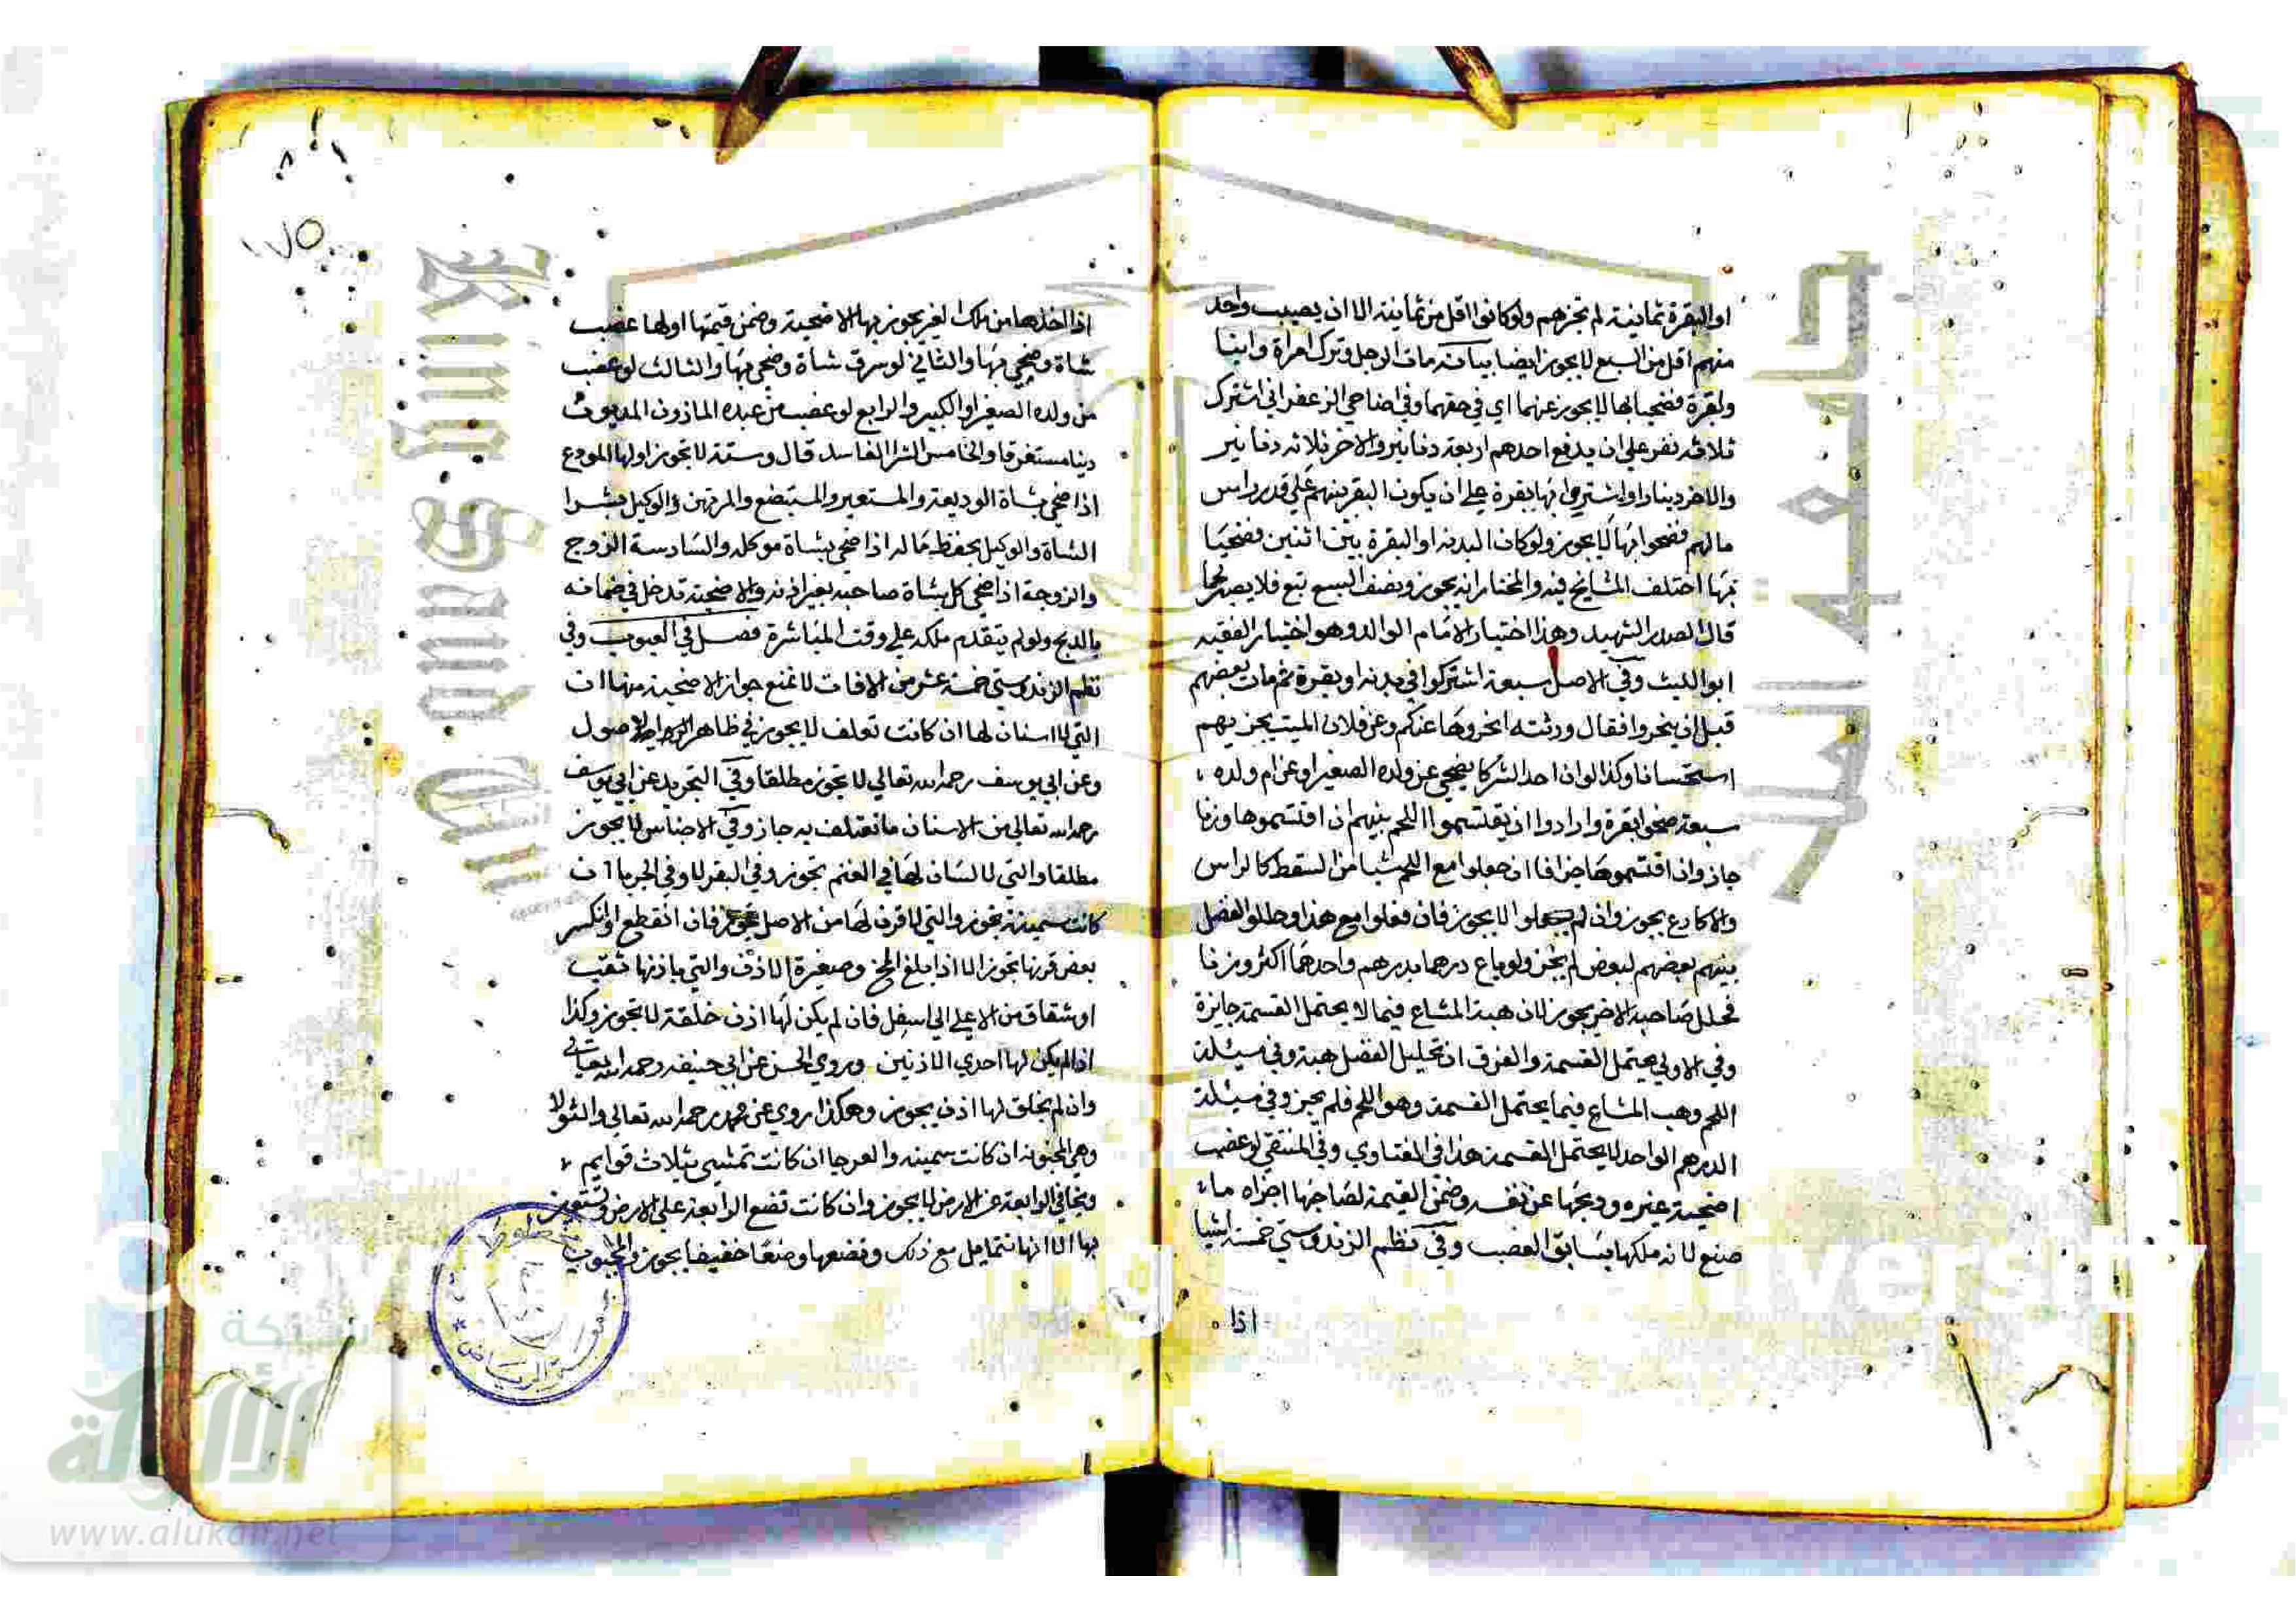 او البقرة ثمانية لم تجزهم ولو كانوا اقل من ثمانية الا ان نصيب واحد
منهم اقل من السبع لا يجوز ايضا بيانه مات الرجل وترك امراة وابنا
وبقرة فضحيا بها لا يجوز عنهما اي في حقهما وفي اضاحي الزعفراني اشترك
ثلاثة نفر علي ان يدفع احدهم اربعة دنانير والاخر ثلاثه دنانير
والاخر دينارا واشتروا بها بقرة علي ان يكون البقر بينهم علي قدر راس
مالهم فضحوا بها لا يجوز ولو كان البدنه او البقرة بين اثنين فضحيا
بها اختلف المشايخ فيه والمختار انه يجوز ونصف السبع تبع فلا يصير لحما
قال الصدر الشهيد وهذا اختيار الامام الوالد وهو اختيار الفقيه
ابو الليث وفي الاصل سبعة اشتركوا في بدنه او بقرة ثم مات بعضهم
قبل ان ينحروا فقال ورثته انحروها عنكم وعن فلان الميت يجزيهم
استحسانا وكذا لو ان احد الشركا يضحي عن ولده الصغير او عن ام ولده
سبعة ضحوا بقرة وارادوا ان يقتسموا اللحم بينهم ان اقتسموها وزنا
جاز وان اقتسموها جزافا ان جعلوا مع اللحم شيا من السقط كالراس
والاكارع يجوز وان لم يجعلوا لا يجوز فان فعلوا مع هذا وحللوا الفضل
بينهم بعضهم لبعض لم يجز ولو باع درهما بدرهم واحدهما اكثر وزنا
فحلل صاحبه الاخر يجوز لان هبة المشاع فيما لا يحتمل القسمة جايزة
وفي الاولي يحتمل القسمة والفرق ان تحليل الفضل هبة وفي مسئلة
اللحم وهب المشاع فيما يحتمل القسمة وهو اللحم فلم يجز وفي مسئلة
الدرهم الواحد لا يحتمل القسمة هذا في الفتاوي وفي المنتقي لو غصب
اضحية غيره وذبحها عن نفسه وضمن القيمة لصاحبها اجزاه ما
صنع لانه ملكها بسابق الغصب وفي نظم الزندوستي خمسة اشيا
اذا
١٧٥
اذا اخذها من ملك الغير يجوز بها الاضحية وضمن قيمتها اولها غصب
شاة وضحي بها والثاني لو سرق شاة وضحي بها والثالث لو غصب
من ولده الصغير او الكبير والرابع لو غصب من عبده الماذون المديون
دينا مستغرقا والخامس الشرا الفاسد قال وستة لا يجوز اولها المودع
اذا ضحي بشاة الوديعة والمستعير والمستبضع والمرتهن والوكيل بشرا
الشاة والوكيل بحفظ ماله اذا ضحي بشاة موكله والسادسة الزوج
والزوجة اذا ضحي كل بشاة صاحبه بغير اذنه والاضحية تدخل في ضمانه
بالذبح ولو لم يتقدم ملكه علي وقت المباشرة فصل في العيوب وفي
نظم الزندوستي خمسة عشر من الافات لا تمنع جواز الاضحية منها ان
التي لا اسنان لها ان كانت تعلف لا يجوز في ظاهر الاصول
وعن ابي يوسف رحمه الله تعالي لا تجوز مطلقا وفي التجريد عن ابي يوسف
رحمه الله تعالي من الاسنان ما تعتلف به جاز وفي الاجناس لا يجوز
مطلقا والتي لا لسان لها في الغنم تجوز وفي البقر لا وفي الجربا ان
كانت سمينة تجوز والتي لا قرن لها من الاصل تجوز فان انقطع او انكسر
بعض قرنها تجوز الا اذا بلغ المخ وصغيرة الاذن والتي باذنها ثقب
او شقاق من الاعلي الي اسفل فان لم يكن لها اذن خلقة لا تجوز وكذا
اذا لم يكن لها احدي الاذنين وروي الحسن عن ابي حنيفه رحمه الله تعالي
وان لم يخلق لها اذن يجوز وهكذا روي عن محمد رحمه الله تعالي والثولا
وهي المجنونه ان كانت سمينه والعرجا ان كانت تمشي بثلاث قوايم
وتجافي الرابعة عن الارض لا يجوز وان كانت تضع الرابعة علي الارض وتستعين
بها الا انها تتمايل مع ذلك وتضعها وضعا خفيفا يجوز
شبكة
الألوكة
www.alukah.net